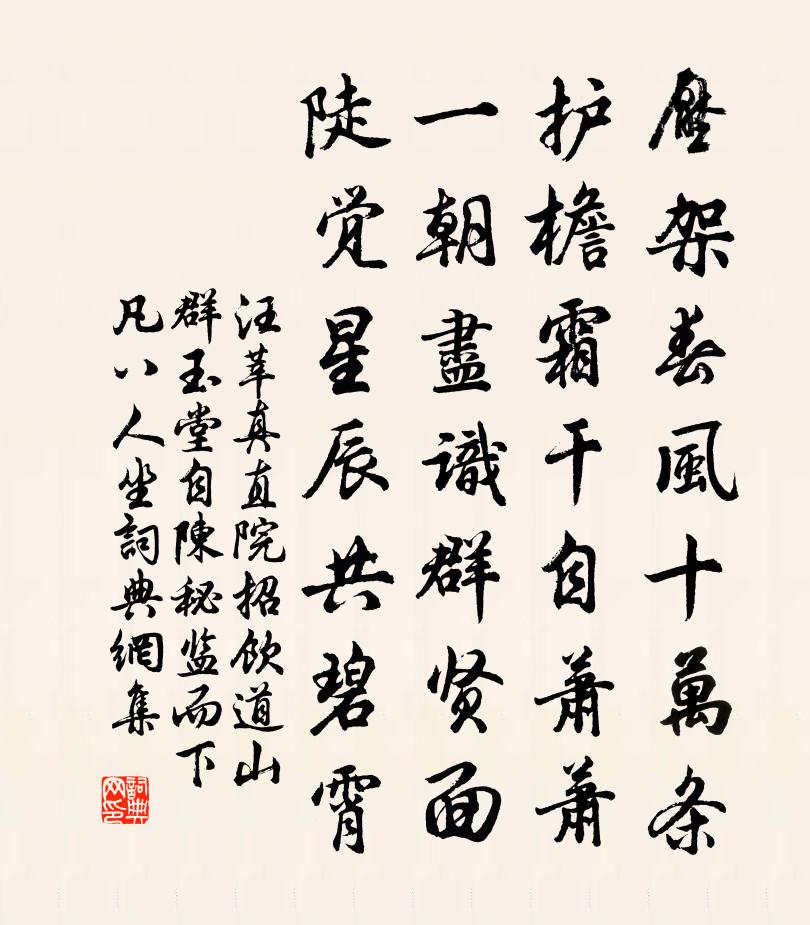 壓架春風十萬条
护檐霜干自蕭蕭
一朝盡識群贤面
陡觉星辰共碧霄
汪莘真直院招飲道山
群玉堂自陳秘监而下
凡八人坐詞典網集
詞典
网印